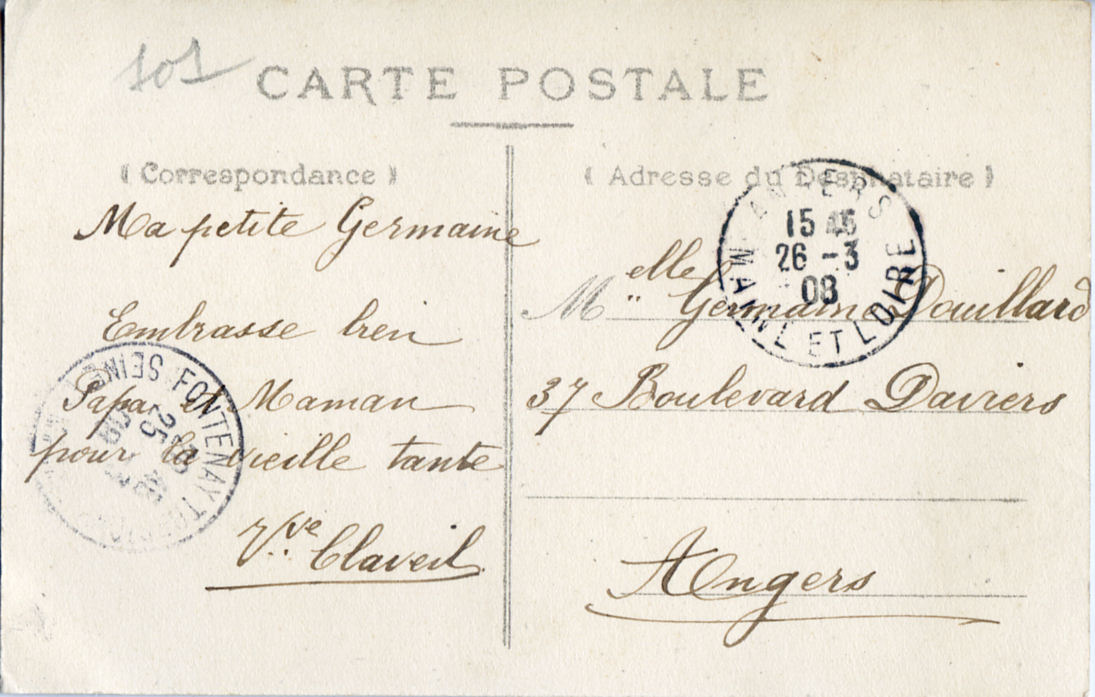 101
CARTE POSTALE
( Correspondance )
Ma petite Germaine
Embrasse bien
Papa et Maman
pour la vieille tante
Vve Claveil
( Adresse du Destinataire )
ANGERS
15 45
26 -3
08
MAINE ET LOIRE
Melle Germaine Douillard
37 Boulevard Daviers
Angers
FONTENAY
SEINE
25